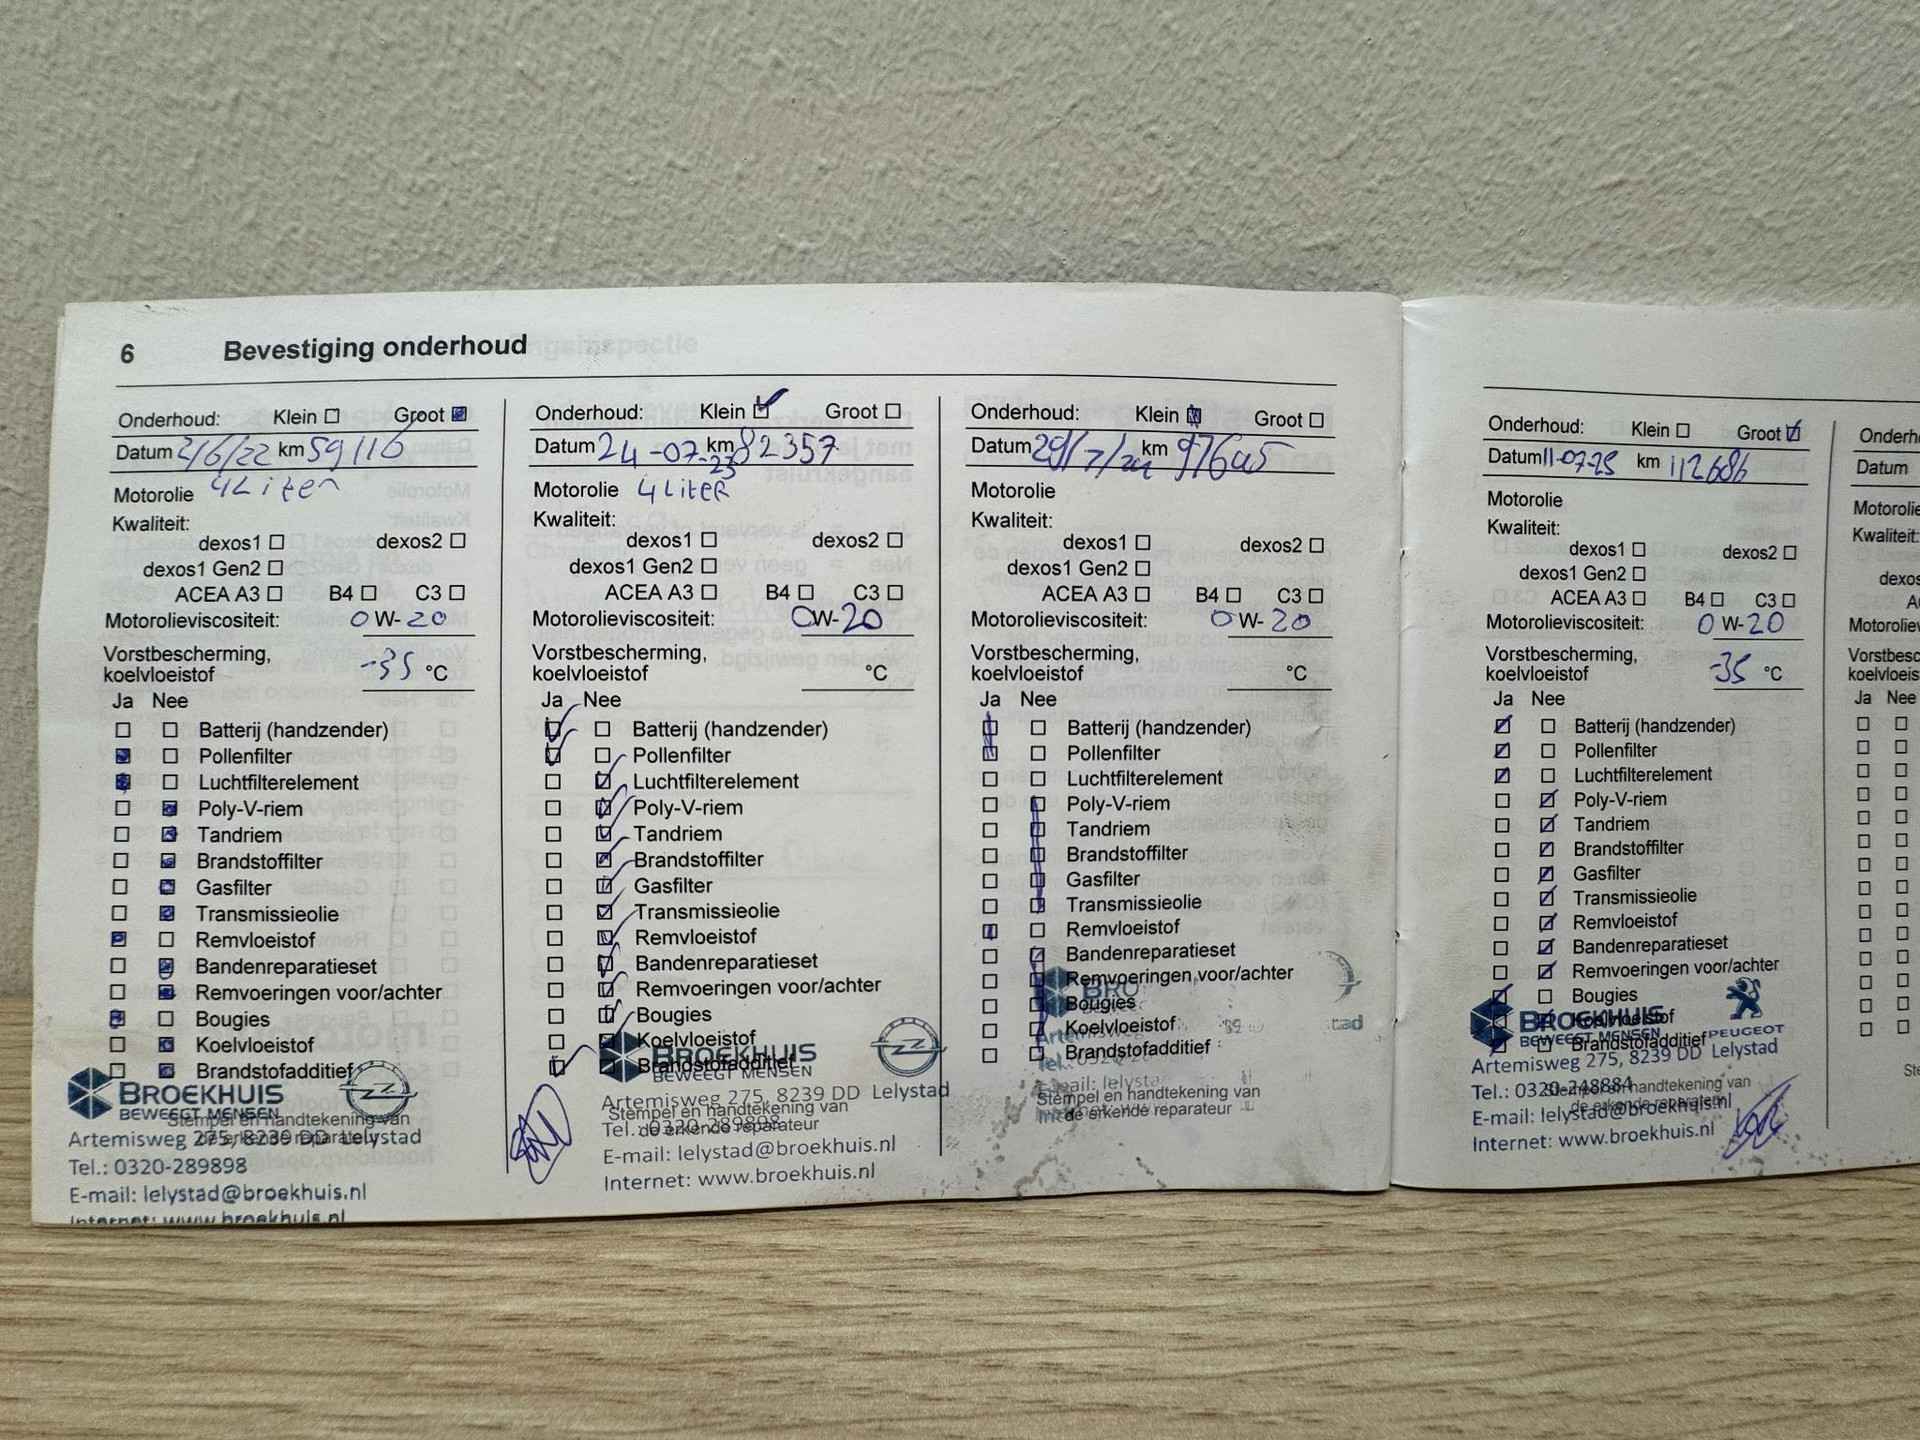 6 Bevestiging onderhoud
Onderhoud: Klein Groot
Datum 2/6/22 km 59116
Motorolie 4 Liter
Kwaliteit:
dexos1 dexos2
dexos1 Gen2
ACEA A3 B4 C3
Motorolieviscositeit: 0 W-20
Vorstbescherming,
koelvloeistof -35 °C
Ja Nee
Batterij (handzender)
Pollenfilter
Luchtfilterelement
Poly-V-riem
Tandriem
Brandstoffilter
Gasfilter
Transmissieolie
Remvloeistof
Bandenreparatieset
Remvoeringen voor/achter
Bougies
Koelvloeistof
Brandstofadditief
BROEKHUIS
BEWEEGT MENSEN
Stempel en handtekening van
de erkende reparateur
Artemisweg 275, 8239 DD Lelystad
Tel.: 0320-289898
E-mail: lelystad@broekhuis.nl
Internet: www.broekhuis.nl
Onderhoud: Klein Groot
Datum 24-07-23 km 82357
Motorolie 4 LiteR
Kwaliteit:
dexos1 dexos2
dexos1 Gen2
ACEA A3 B4 C3
Motorolieviscositeit: 0W-20
Vorstbescherming,
koelvloeistof °C
Ja Nee
Batterij (handzender)
Pollenfilter
Luchtfilterelement
Poly-V-riem
Tandriem
Brandstoffilter
Gasfilter
Transmissieolie
Remvloeistof
Bandenreparatieset
Remvoeringen voor/achter
Bougies
Koelvloeistof
Brandstofadditief
BROEKHUIS
BEWEEGT MENSEN
Artemisweg 275, 8239 DD Lelystad
Stempel en handtekening van
Tel.: 0320-289898
de erkende reparateur
E-mail: lelystad@broekhuis.nl
Internet: www.broekhuis.nl
Onderhoud: Klein Groot
Datum 29/7/24 km
Motorolie
Kwaliteit:
dexos1 dexos2
dexos1 Gen2
ACEA A3 B4 C3
Motorolieviscositeit: 0 W-20
Vorstbescherming,
koelvloeistof °C
Ja Nee
Batterij (handzender)
Pollenfilter
Luchtfilterelement
Poly-V-riem
Tandriem
Brandstoffilter
Gasfilter
Transmissieolie
Remvloeistof
Bandenreparatieset
Remvoeringen voor/achter
Bougies
Koelvloeistof
Brandstofadditief
Stempel en handtekening van
de erkende reparateur
Onderhoud: Klein Groot
Datum 11-07-25 km 112686
Motorolie
Kwaliteit:
dexos1 dexos2
dexos1 Gen2
ACEA A3 B4 C3
Motorolieviscositeit: 0 W-20
Vorstbescherming,
koelvloeistof -35 °C
Ja Nee
Batterij (handzender)
Pollenfilter
Luchtfilterelement
Poly-V-riem
Tandriem
Brandstoffilter
Gasfilter
Transmissieolie
Remvloeistof
Bandenreparatieset
Remvoeringen voor/achter
Bougies
Koelvloeistof
Brandstofadditief
BROEKHUIS
BEWEEGT MENSEN PEUGEOT
Artemisweg 275, 8239 DD Lelystad
Tel.: 0320-248884
Stempel en handtekening van
de erkende reparateur
E-mail: lelystad@broekhuis.nl
Internet: www.broekhuis.nl
Datum
Ja Nee